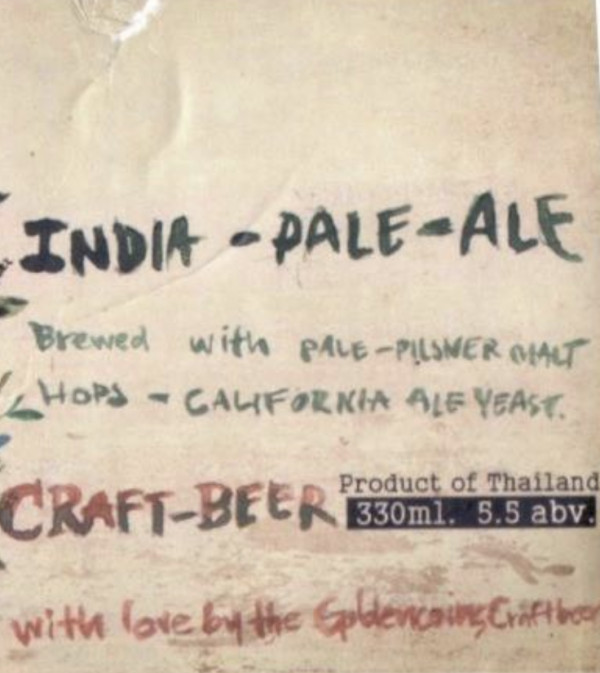 INDIA - PALE - ALE
Brewed with PALE-PILSNER MALT
HOPS - CALIFORNIA ALE YEAST.
CRAFT-BEER
Product of Thailand
330ml. 5.5 abv.
with love by the Goldencoins Craftbeer